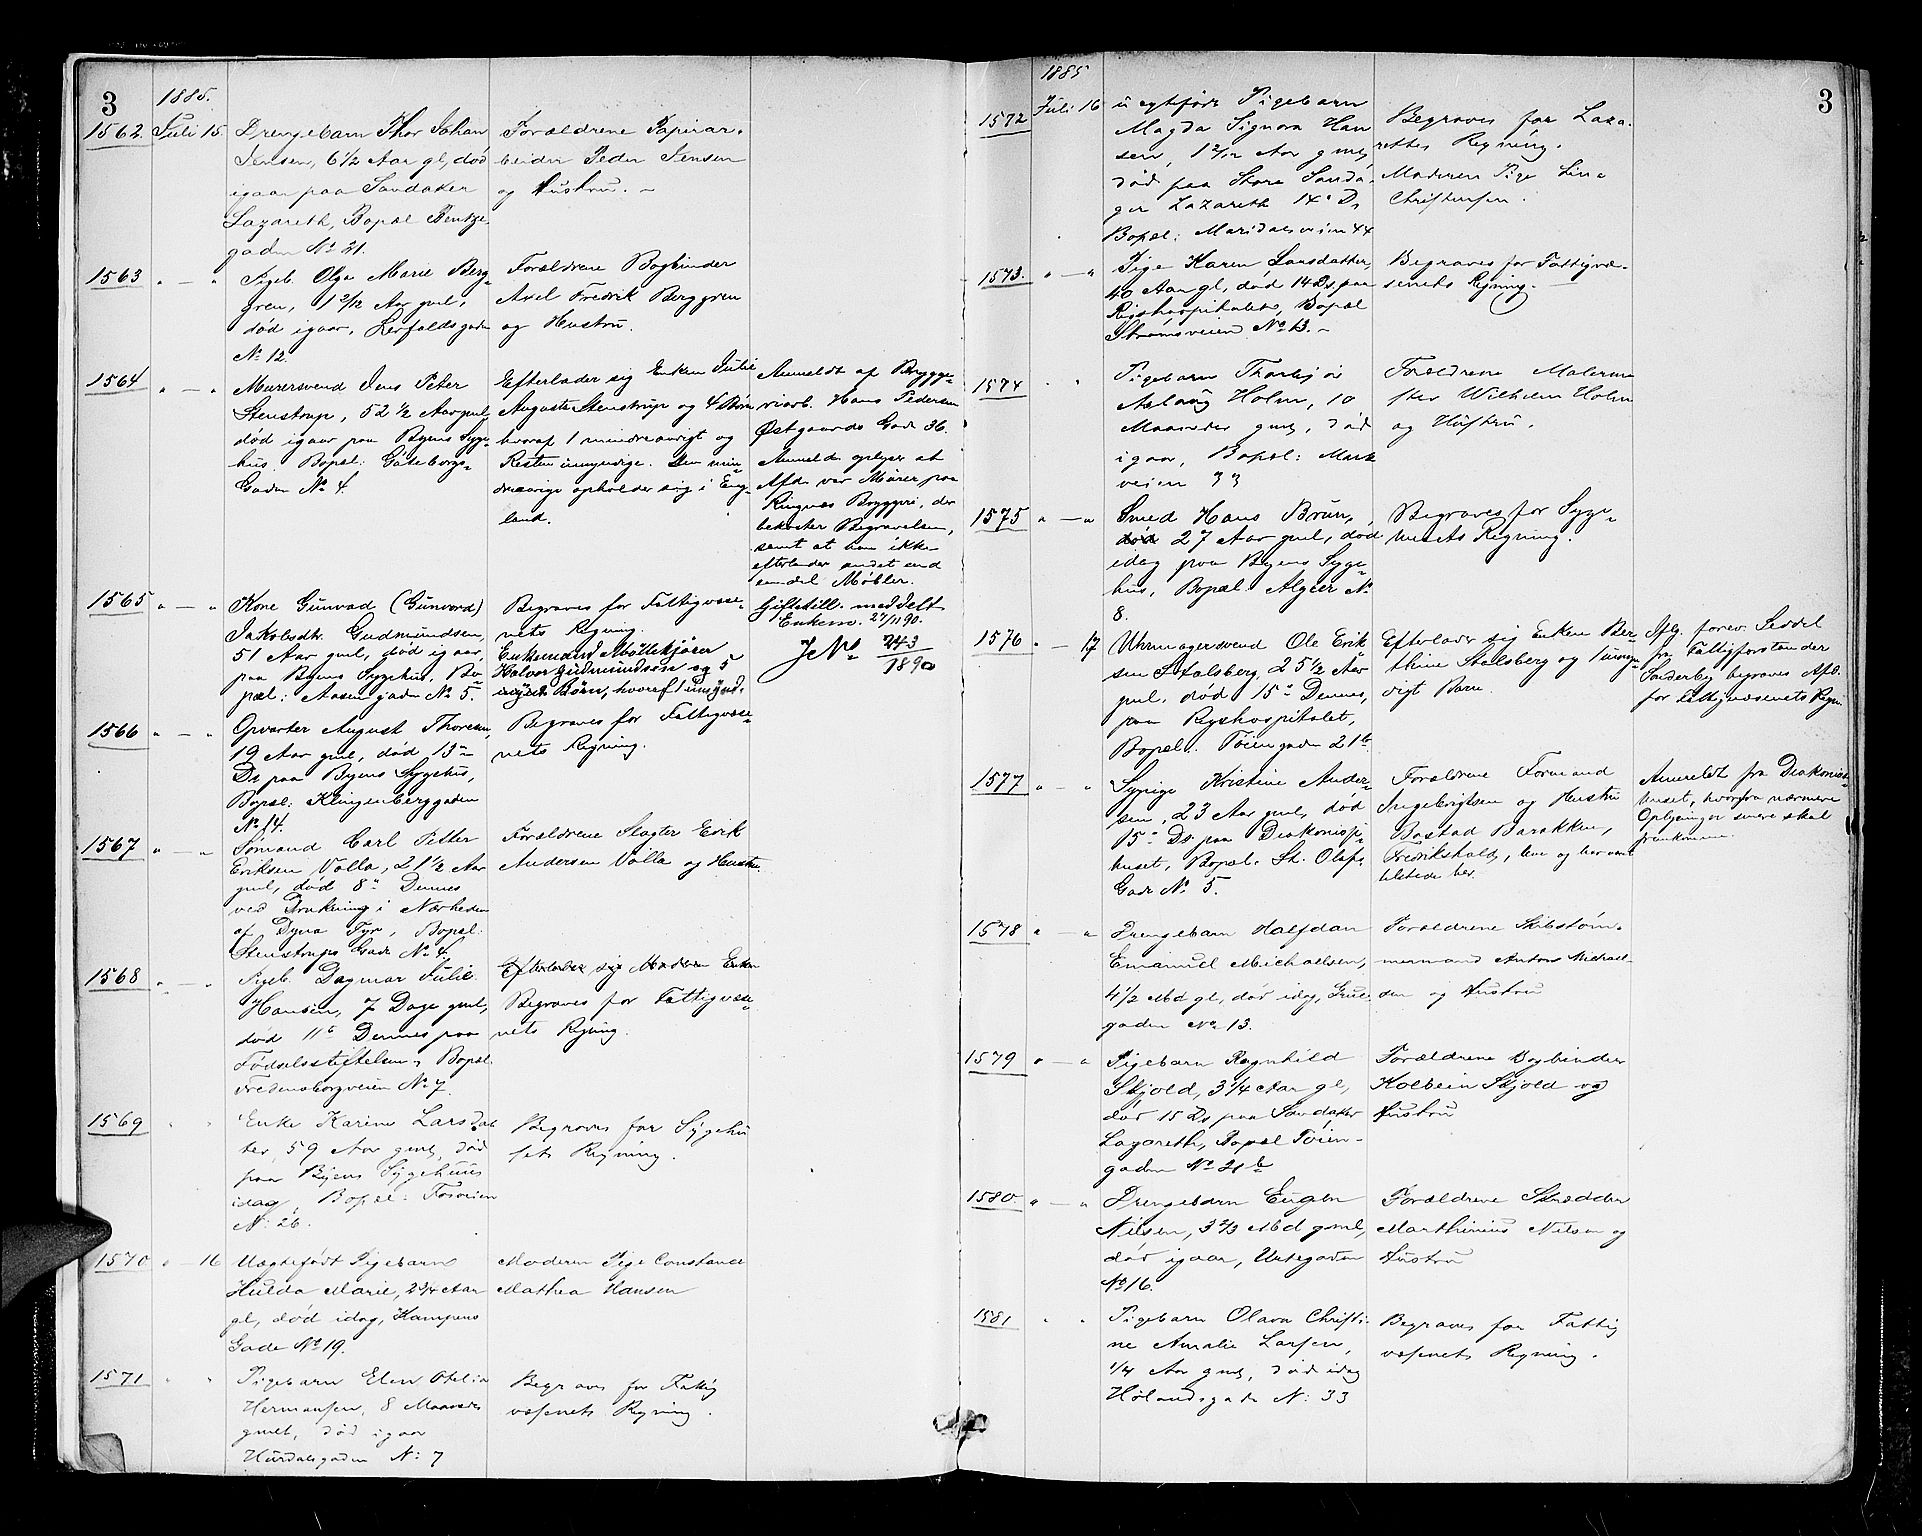 3
1885.
1562. Juli 15. Drengebarn Thor Johan
Jensen, 6 1/2 Aar gl, død
igaar paa Sandaker
Lazareth, Bopæl Bentze
gaden No 21.
Forældrene Papirar-
beider Peder Jensen
og Hustru. -
1563 " — " Pigeb. Olga Marie Berg-
gren, 1 2/12 Aar gml.
død igaar, Lerfaldsgaden
No 12.
Forældrene Bogbinder
Axel Fredrik Berggren
og Hustru.
1564 " — " Murersvend Jens Peter
Stenstrup, 52 1/2 Aar gml,
død igaar paa Byens Syge-
hus. Bopæl: Gøteborgs-
Gaden No 4.
Efterlader sig Enken Julie
Augusta Stenstrup og 4 Børn
hvoraf 1 mindreaarigt og
Resten umyndige. Den min-
dreaarige opholder sig i Eng-
land.
Anmeldt af Brygge-
riarb. Hans Pedersen
Østgaards Gade 36.
Anmelder oplyser at
Afde var Murer paa
Ringnæs Bryggeri, der
bekoster Begravelsen,
samt at han ikke
efterlader andet end
endel Møbler.
Giftetill. meddelt
Enkem. 27/11 90.
J No 243/1890
1565 " — " Kone Gunvad (Gunvord)
Jakobsdtr. Gudmundsen,
51 Aar gml, død igaar,
paa Byens Sygehus. Bo-
pæl: Aasengaden No 5.
Begraves for Fattigvæse-
nets Regning.
Enkemand Møllekjører
Halvor Gudmundsen og 5
Børn, hvoraf 1 umynd.
1566 " — " Opvarter August Thoresen,
19 Aar gml, død 13de
Ds paa Byens Sygehus,
Bopæl: Klingenberggaden
No 14.
Begraves for Fattigvæse-
nets Regning.
1567 " — " Sømand Carl Petter
Eriksen Volla, 21 1/2 Aar
gml, død 8de Dennes
ved Drukning i Nærheden
af Dyna Fyr, Bopæl:
Stenstrups Gade No 4.
Forældrene Slagter Erik
Andersen Volla og Hustru.
1568 " — " Pigeb. Dagmar Julie
Hansen, 7 Dage gml,
død 11te Dennes paa
Fødselsstiftelsen, Bopæl
Fredensborgveien No 7.
Efterlader sig Moderen Enken
Begraves for Fattigvæse-
nets Regning.
1569 " " Enke Karine Larsdat
ter, 59 Aar gml, død
paa Byens Sygehuus
idag, Bopæl: Fosveien
No: 26.
Begraves for Sygehu
sets Regning.
1570 " — 16 Uægtefødt Pigebarn
Hulda Marie, 2 3/4 Aar
gl, død idag, Kampens
Gade No 19.
Moderen Pige Constance
Mathea Hansen
1571 " " Pigebarn Elen Otelia
Hermansen, 8 Maaneder
gmel, død igaar
Hurdalsgaden No: 7
Begraves for Fattig
væsenets Regning.
3
1885
1572 Juli 16 uægtefødt Pigebarn
Magda Signora Han
sen, 1 2/12 Aar gml,
død paa Store Sanda-
ger Lazareth 14de Ds
Bopæl: Maridalsveien 44
Begraves for Laza-
rettes Regning.
Moderen Pige Line
Christensen.
1573. " — " Pige Karen Larsdatter,
40 Aar gl, død 14 Ds paa
Rigshospitalet, Bopæl
Strømsveien No 13. -
Begraves for Fattigvæ-
senets Regning. -
1574 " " Pigebarn Thorbjør
Aslaug Holm, 10
Maaneder gml, død
igaar, Bopæl: Mark
veien 33
Forældrene Malerme
ster Wilhelm Holm
og Hustru.
1575 " — " Smed Hans Brun,
død 27 Aar gml, død
idag paa Byens Syge-
hus, Bopæl Algier No
8.
Begraves for Syge-
husets Regning.
1576 " — 17 Uhrmagersvend Ole Erik
sen Stalsberg, 25 1/2 Aar
gml, død 15de Dennes,
paa Rigshospitalet,
Bopæl: Tøiengaden 21b
Efterlader sig Enken Ber-
thine Stalsberg og 1 umyn-
digt Barn.
Iflg. forev. Seddel
fra Fattigforstander
Sønderby begraves Afd.
for Fattigvæsenets Regn.
1577 " — " Sypige Kristine Ander-
sen, 23 Aar gml, død
15de Ds paa Diakonisse-
huset, Bopæl. St. Olafs
Gade No 5.
Forældrene Formand
Ingebrigtsen og Hustru
Bosted Barakken,
Fredrikshald, leve og har været
tilstede her.
Anmeldt fra Diakonisse-
huset, hvorfra nærmere
Oplysninger senere skal
fremkomme.
1578 " — " Drengebarn Halfdan
Emanuel Michaelsen,
4 1/2 Md gl, død idag, Grue-
gaden No 13.
Forældrene Skibstøm-
mermand Anton Michael-
sen og Hustru
1579 " — " Pigebarn Ragnhild
Skjold, 3 1/4 Aar gl,
død 15 Ds paa Sandaker
Lazareth, Bopæl Tøien-
gaden No 21b
Forældrene Bogbinder
Kolbein Skjold og
Hustru
1580 " — " Drengebarn Eugen
Nilsen, 3 2/3 Md gml,
død igaar, Urtegaden
No 16.
Forældrene Skrædder
Marthinius Nilsen og
Hustru
1581 " " Pigebarn Olava Christi-
ne Amalie Larsen,
1/4 Aar gml, død idag
Hølandsgade No: 33
Begraves for Fattig
væsenets Regning.